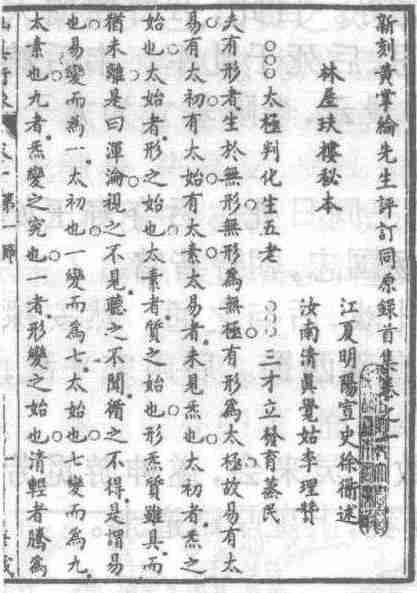 新刻黃掌綸先生評訂同原錄首集卷之一
江夏明陽宣史徐衜述
林屋玞樓秘本
汝南清眞覺姑李理贊
○○○太極判化生五老　○○○三才立發育蒸民
夫有形者生於無形無形為無極有形為太極故易有太
易有太初有太始有太素太易者未見炁也太初者炁之
始也太始者形之始也太素者質之始也形炁質雖具而
猶未離是曰渾淪視之不見聽之不聞循之不得是謂易
也易變而為一太初也一變而為七太始也七變而為九
太素也九者炁變之究也一者形變之始也清輕者騰為